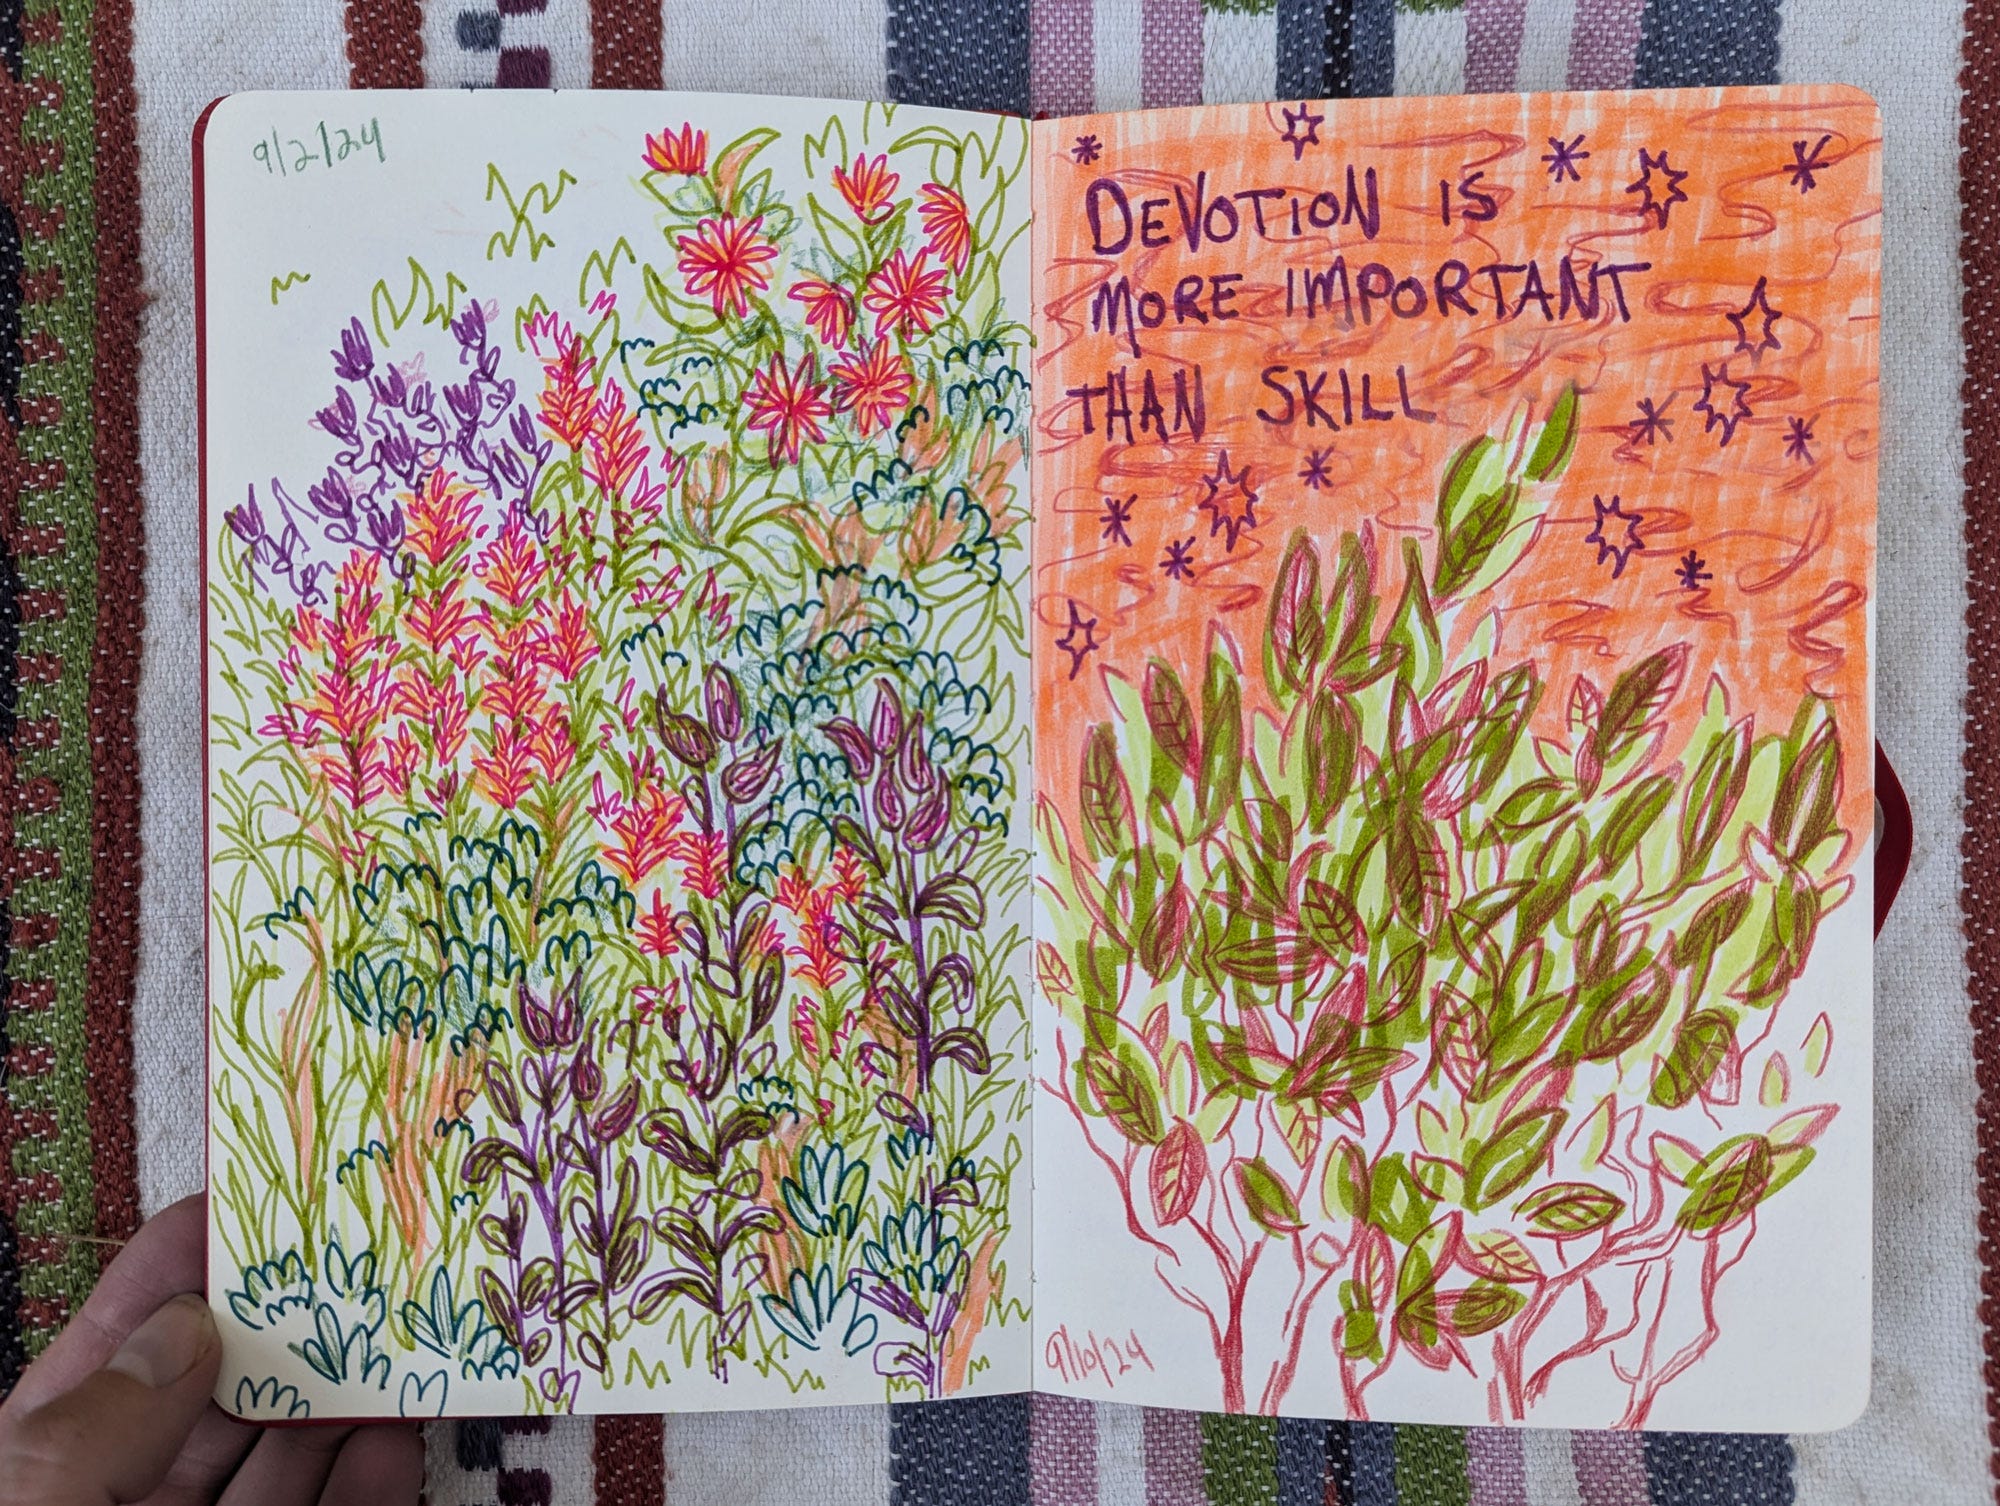 9/2/24
DEVOTION IS
MORE IMPORTANT
THAN SKILL
9/10/24